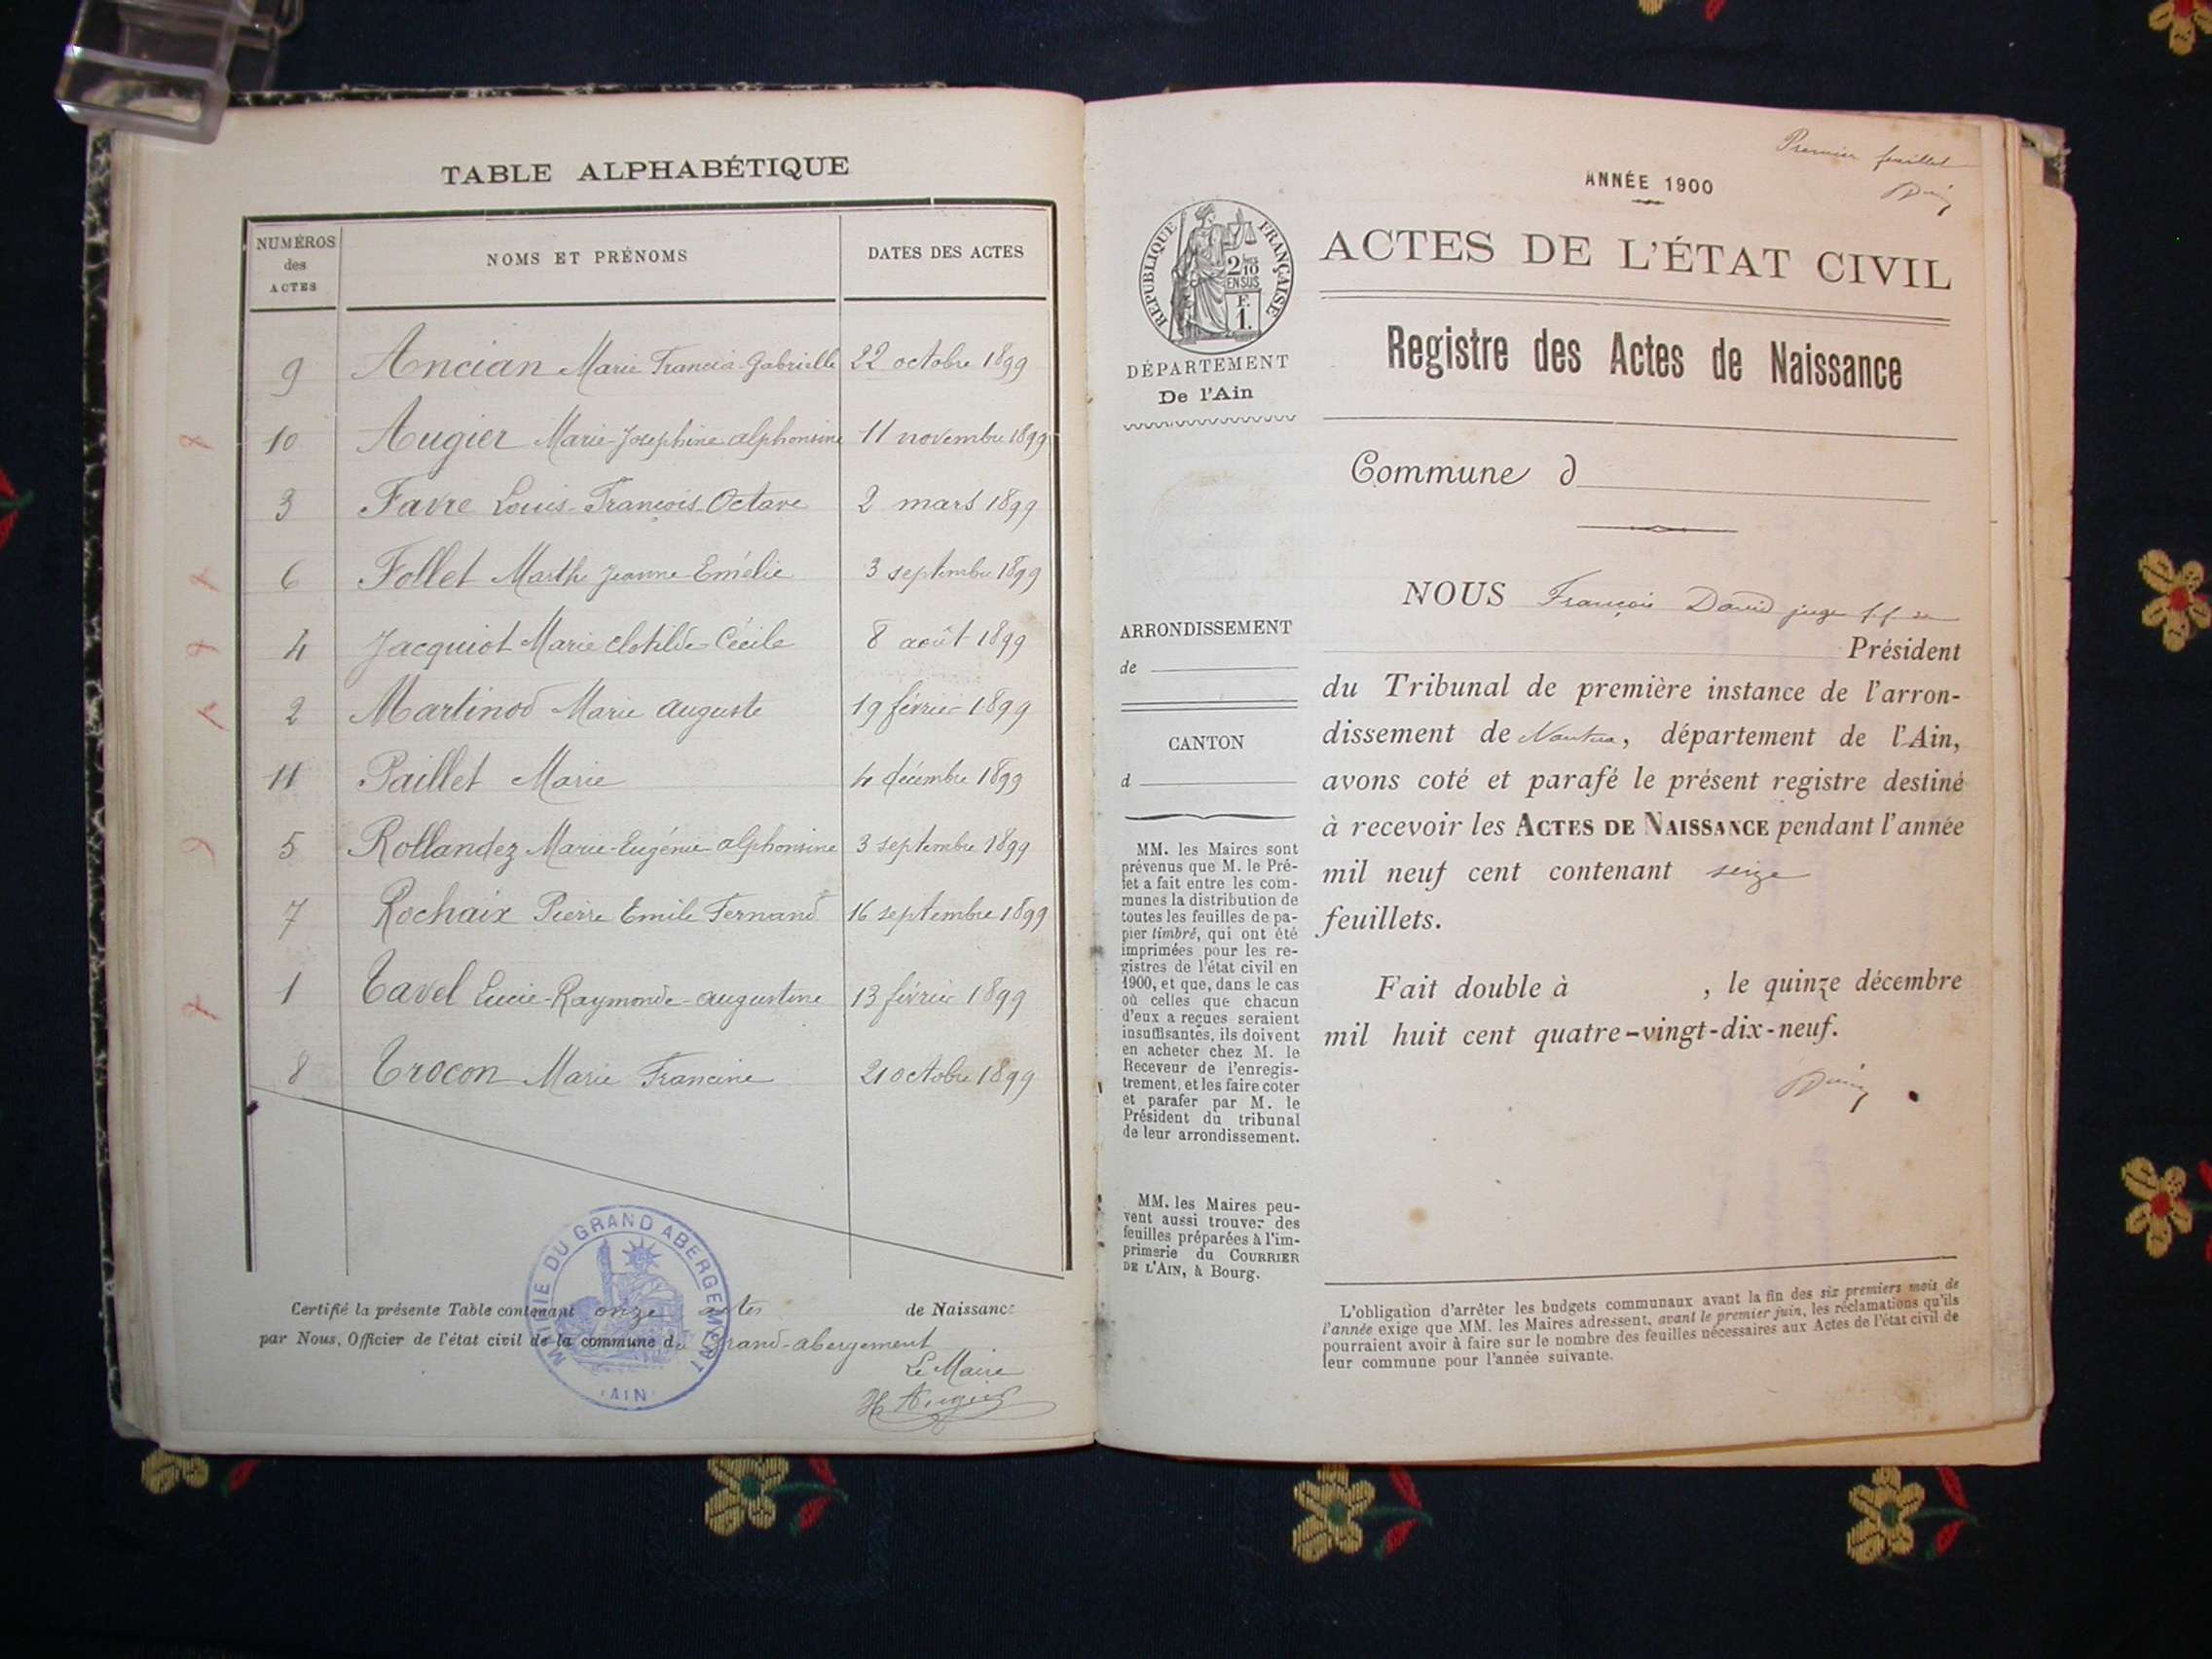 TABLE ALPHABÉTIQUE
NUMÉROS des ACTES NOMS ET PRÉNOMS DATES DES ACTES
9 Ancian Marie Francia Gabrielle 22 octobre 1899
10 Augier Marie-Joséphine alphonsine 11 novembre 1899
3 Favre Louis-François Octave 2 mars 1899
6 Follet Marthe Jeanne Emélie 3 septembre 1899
4 Jacquiot Marie Clotilde-Cécile 8 août 1899
2 Martinod Marie Auguste 19 février 1899
11 Paillet Marie 4 décembre 1899
5 Rollandez Marie-Eugénie alphonsine 3 septembre 1899
7 Rochaix Pierre Emile Fernand 16 septembre 1899
1 Tavel Lucie-Raymonde-augustine 13 février 1899
8 Trocon Marie Francine 21 octobre 1899
MAIRIE DU GRAND ABERGEMENT
(AIN)
Certifié la présente Table contenant onze actes de Naissance
par Nous, Officier de l'état civil de la commune du Grand-abergement
Le Maire
H Augier
Premier feuillet
ANNÉE 1900
ACTES DE L'ÉTAT CIVIL
RÉPUBLIQUE FRANÇAISE
2/10
EN SUS
F.
1.
DÉPARTEMENT
De l'Ain
Registre des Actes de Naissance
Commune d
ARRONDISSEMENT
de
CANTON
d
MM. les Maires sont
prévenus que M. le Pré-
fet a fait entre les com-
munes la distribution de
toutes les feuilles de pa-
pier timbré, qui ont été
imprimées pour les re-
gistres de l'état civil en
1900, et que, dans le cas
où celles que chacun
d'eux a reçues seraient
insuffisantes, ils doivent
en acheter chez M. le
Receveur de l'enregis-
trement, et les faire coter
et parafer par M. le
Président du tribunal
de leur arrondissement.
MM. les Maires peu-
vent aussi trouver des
feuilles préparées à l'im-
primerie du COURRIER
DE L'AIN, à Bourg.
NOUS François David juge f.f. de
Président
du Tribunal de première instance de l'arron-
dissement de Nantua, département de l'Ain,
avons coté et parafé le présent registre destiné
à recevoir les ACTES DE NAISSANCE pendant l'année
mil neuf cent contenant seize
feuillets.
Fait double à , le quinze décembre
mil huit cent quatre-vingt-dix-neuf.
L'obligation d'arrêter les budgets communaux avant la fin des six premiers mois de
l'année exige que MM. les Maires adressent, avant le premier juin, les réclamations qu'ils
pourraient avoir à faire sur le nombre des feuilles nécessaires aux Actes de l'état civil de
leur commune pour l'année suivante.